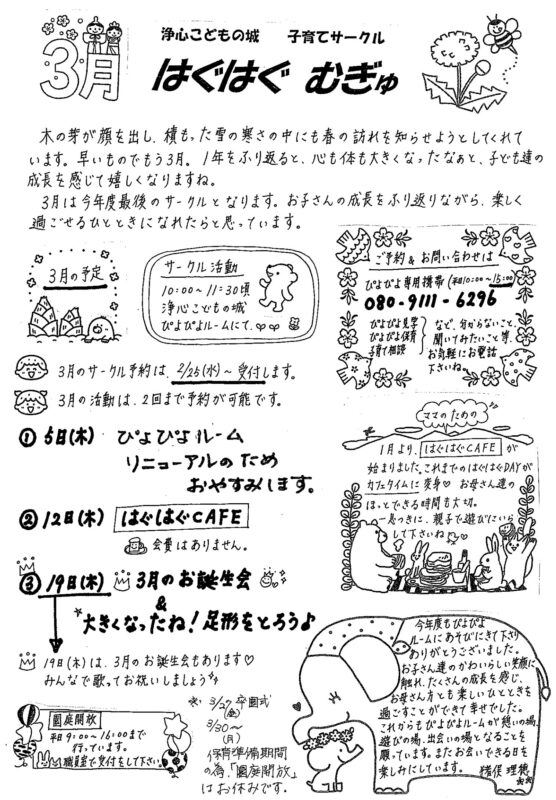 3月
浄心こどもの城　子育てサークル
はぐはぐ むぎゅ
木の芽が顔を出し、積もった雪の寒さの中にも春の訪れを知らせようとしてくれて
います。早いものでもう3月。1年をふり返ると、心も体も大きくなったなぁと、子ども達の
成長を感じて嬉しくなりますね。
3月は今年度最後のサークルとなります。お子さんの成長をふり返りながら、楽しく
過ごせるひとときになれたらと思っています。
3月の予定
サークル活動
10:00～11:30頃
浄心こどもの城
ぴよぴよルームにて。
ご予約&お問い合わせは
ぴよぴよ専用携帯(平日10:00～15:00)
080-9111-6296
ぴよぴよ見学
ぴよぴよ保育
子育て相談
など、分からないこと、
聞いてみたいこと等、
お気軽にお電話
下さいね。
3月のサークル予約は、2/25(水)～受付します。
3月の活動は、2回まで予約が可能です。
①5日(木) ぴよぴよルーム
リニューアルのため
おやすみします。
②12日(木) はぐはぐCAFE
会費はありません。
③19日(木) 3月のお誕生会
&
大きくなったね！足形をとろう♪
19日(木)は、3月のお誕生会もあります♡
みんなで歌ってお祝いしましょう
ママのための
1月より、はぐはぐCAFEが
始まりました。これまでのはぐはぐDAYが
カフェタイムに変身♡ お母さん達の
ほっとできる時間も大切。
一息つきに、親子で遊びにいら
して下さいね
園庭開放
平日9:00～16:00まで
行っています。
職員室で受付をして下さい。
※ 3/27(金) 卒園式
3/30～(月)
保育準備期間
の為、「園庭開放」
はお休みです。
今年度もぴよぴよ
ルームにあそびにきて下さり
ありがとうございました。
お子さん達のかわいらしい笑顔に
触れ、たくさんの成長を感じ、
お母さん方とも楽しいひとときを
過ごすことができて幸せでした。
これからもぴよぴよルームが憩いの場、
遊びの場、出会いの場となることを
願っています。またお会いできる日を
楽しみにしています。 猪俣 理穂